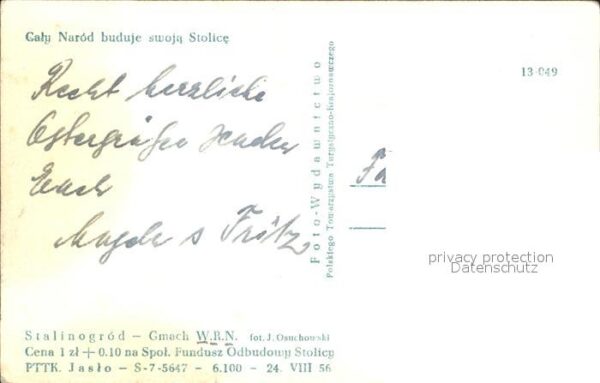 Cały Naród buduje swoją Stolicę
13-049
Recht herzliche
Ostergrüße senden
Euch
Magda s Fritz
Foto-Wydawnictwo
Polskiego Towarzystwa Turystyczno-Krajoznawczego
Fa
privacy protection
Datenschutz
Stalinogród – Gmach W.R.N. fot. J. Osuchowski
Cena 1 zł + 0.10 na Społ. Fundusz Odbudowy Stolicy
PTTK. Jasło – S-7-5647 – 6.100 – 24. VIII 56